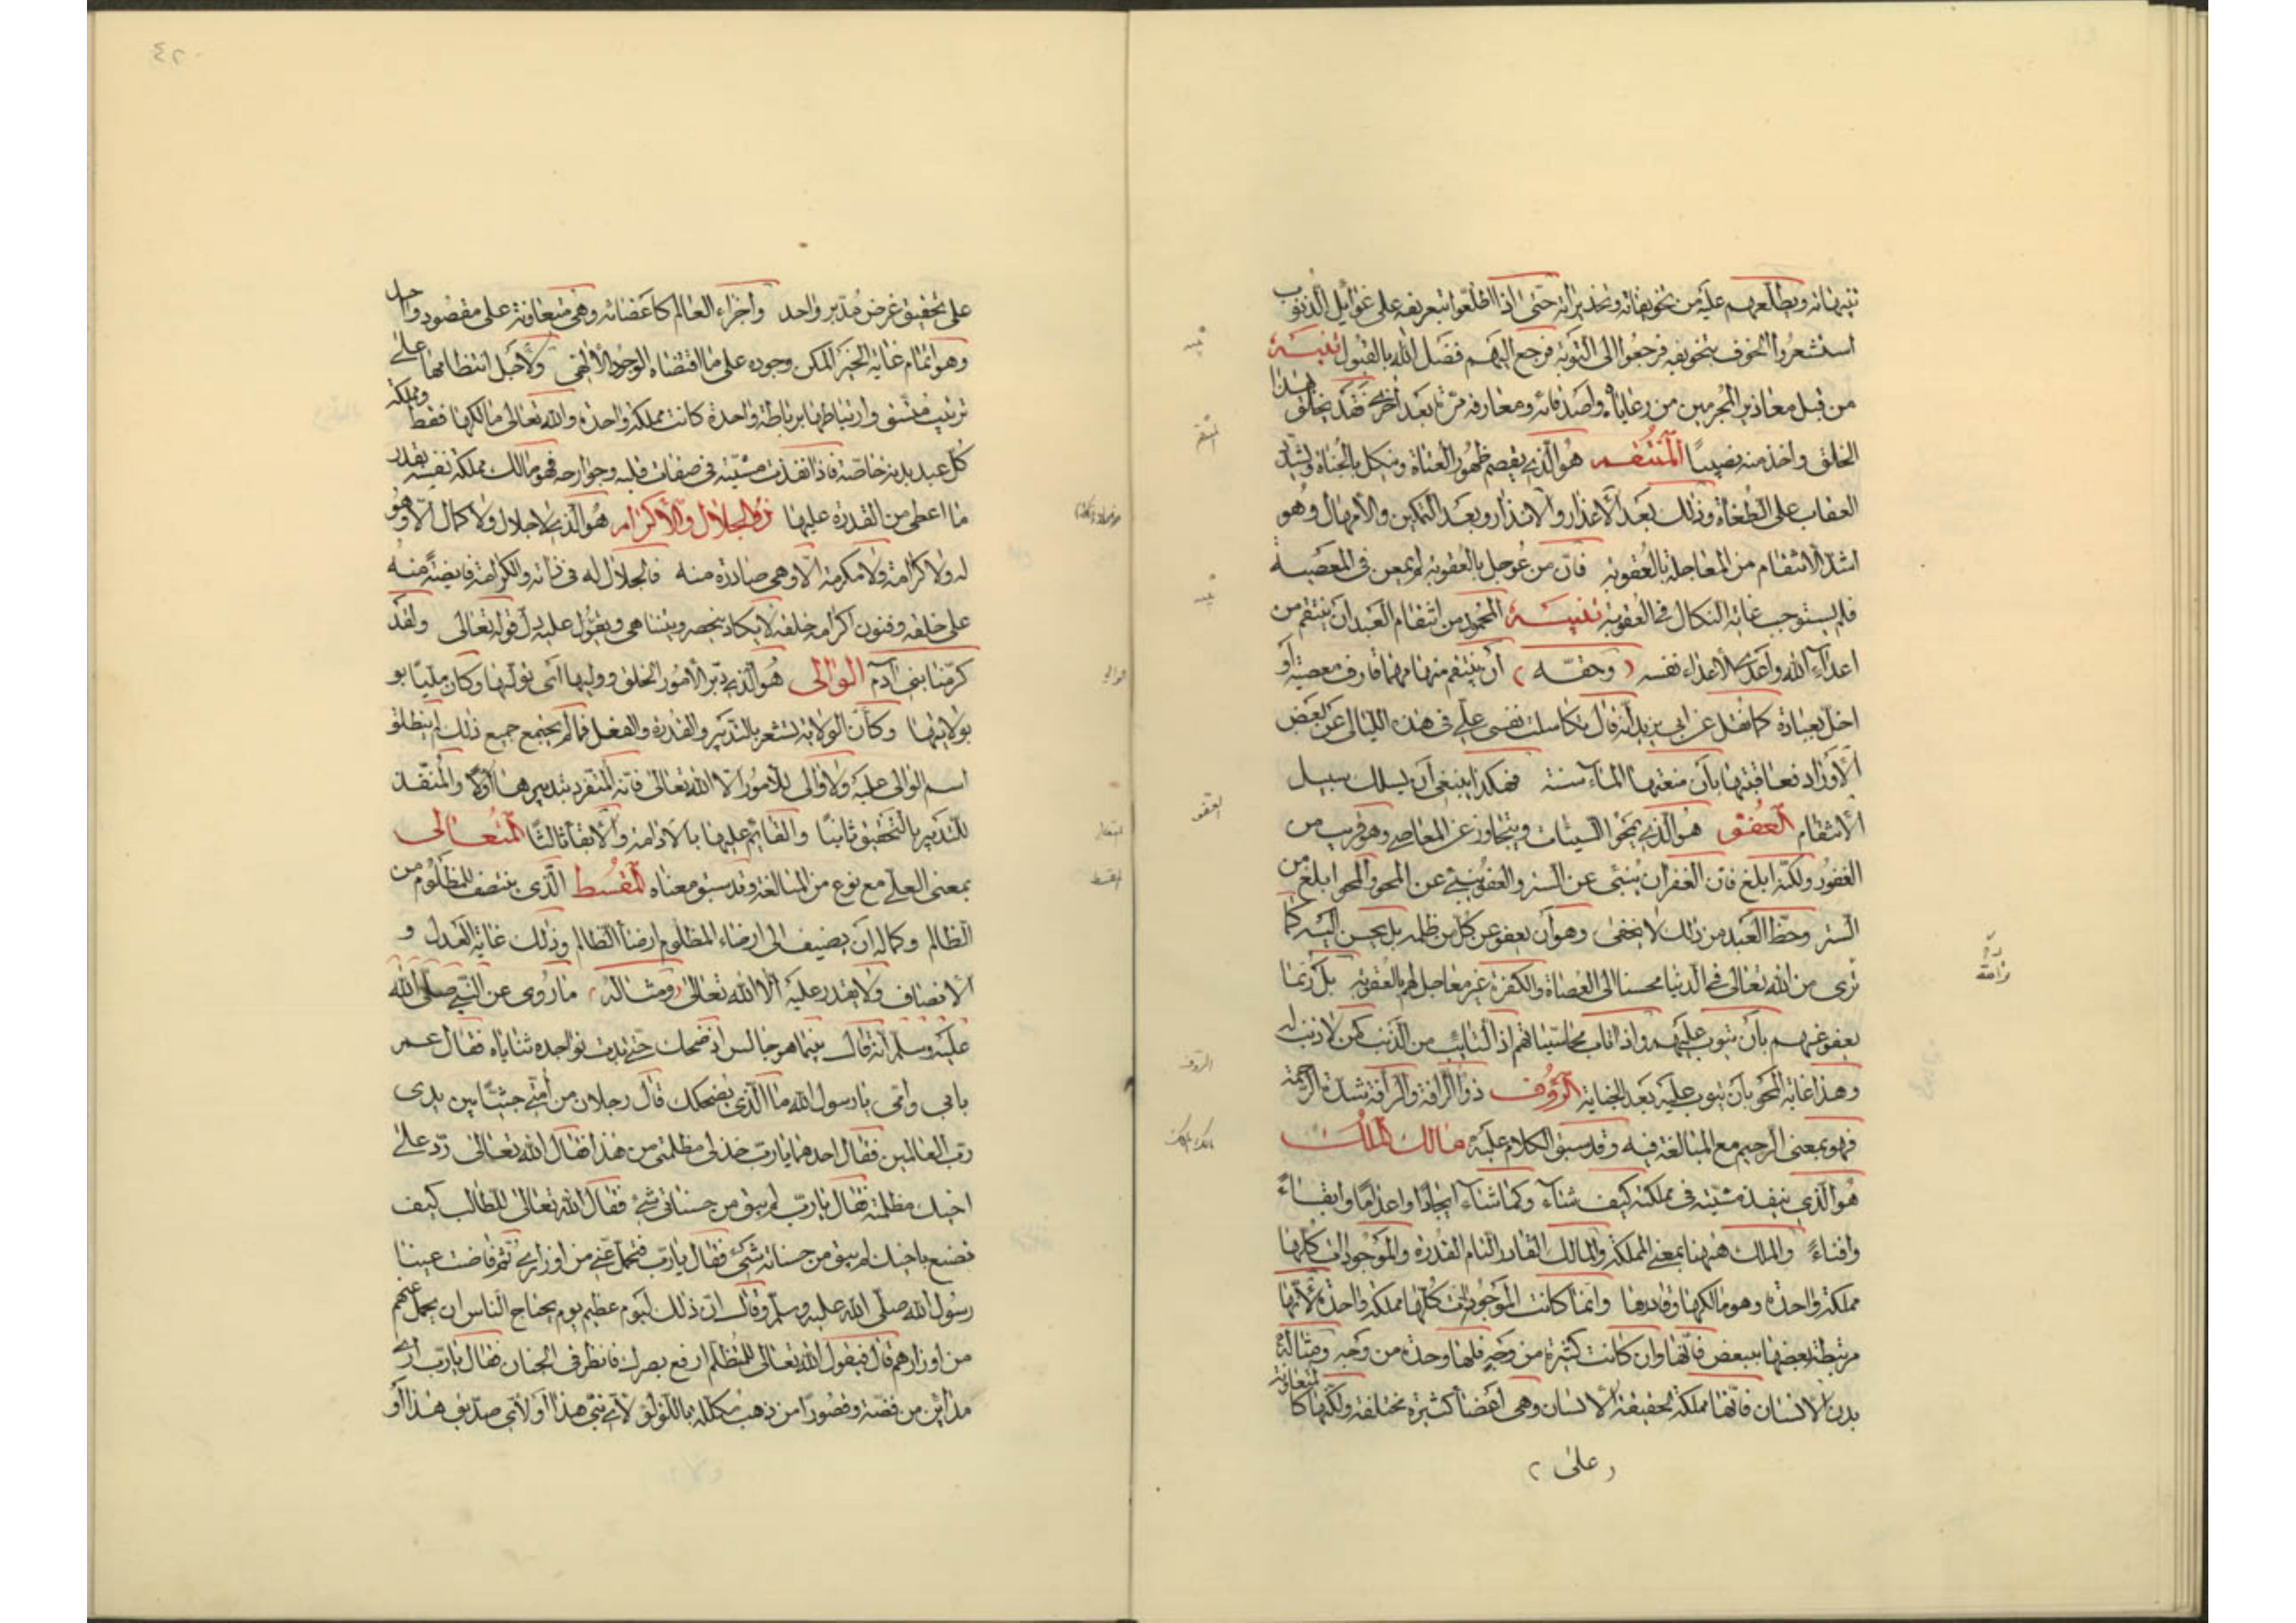 تنبيهاته ويطلعهم عليه من تخويفاته وتحذيراته حتى اذا اطلعوا بتعريفه على غوائل الذنوب
استشعروا الخوف بتخويفه فرجعوا الى التوبة فرجع اليهم فضل الله بالقبول تنبيه
من قبل معاذير المجرمين من رعاياه واصدقائه ومعارفه مرّة بعد اخرى فقد تخلق بهذا
الخلق واخذ منه نصيبًا المنتقم هو الذي يقصم ظهور العتاة وينكل بالجناة ويشدّد
العقاب على الطغاة وذلك بعد الاعذار والانذار وبعد التمكين والامهال وهو
اشدّ الانتقام من المعاجلة بالعقوبة فانّ من عوجل بالعقوبة لم يمعن فى المعصية
فلم يستوجب غاية النكال فى العقوبة تنبيه المحمود من انتقام العبد ان ينتقم من
اعداء الله واعدى الاعداء نفسه وحقّه ان ينتقم منها مهما قارف معصية او
اخلّ بعبادة كما نقل عن ابى يزيد انّه قال تكاسلت نفسى علىّ فى هذه الليالى عن بعض
الاوراد فعاقبتها بأن منعتها الماء سنة فهكذا ينبغى أن يسلك سبيل
الانتقام العفوّ هو الذي يمحو السيئات ويتجاوز عن المعاصى وهو قريب من
الغفور ولكنّه ابلغ فان الغفران ينبئ عن الستر والعفو ينبئ عن المحو والمحو ابلغ من
الستر وحظّ العبد من ذلك لا يخفى وهو أن يعفو عن كلّ من ظلمه بل يحسن اليه كما
ترى من الله تعالى فى الدنيا محسنا الى العصاة والكفرة غير معاجل لهم بالعقوبة بل ربّما
يعفو عنهم بأن يتوب عليهم واذا تاب محا سيّئاتهم اذ التائب من الذنب كمن لا ذنب له
وهذا غاية المحو بأن يتوب عليه بعد الجناية الرؤوف ذو الرأفة والرأفة شدّة الرحمة
فهو بمعنى الرحيم مع المبالغة فيه وقد سبق الكلام عليه مالك الملك
هو الذى ينفذ مشيّته فى مملكته كيف شاء وكما شاء ايجادًا واعدامًا وابقاءً
وافناءً والملك ههنا بمعنى المملكة والمالك القادر التام القدرة والموجودات كلّها
مملكة واحدة وهو مالكها وقادرها وانّما كانت الموجودات كلّها مملكة واحدة لأنّها
مرتبطة بعضها ببعض فانّها وان كانت كثيرة من وجه فلها وحدة من وجه ومثاله
بدن الانسان فانّها مملكة لحقيقة الانسان وهى أعضاء كثيرة مختلفة ولكنّها كالمتعاونة
على
على تحقيق غرض مدبّر واحد وأجزاء العالم كاعضائه وهى متعاونة على مقصود واحد
وهو اتمام غاية الخير الممكن وجوده على ما اقتضاه الوجود الالهى ولأجل انتظامها على
ترتيب متّسق وارتباطها برابطة واحدة كانت مملكة واحدة والله تعالى مالكها فقط ومملكة
كل عبد بدنه خاصّة فاذا نفذت مشيّته فى صفات قلبه وجوارحه فهو مالك مملكة نفسه بقدر
ما اعطى من القدرة عليها ذو الجلال والاكرام هو الذى لا جلال ولا كمال الّا وهو
له ولا كرامة ولا مكرمة الّا وهى صادرة منه فالجلال له فى ذاته والكرامة فايضة منه
على خلقه وفنون اكرامه خلقه لا يكاد ينحصر ويتناهى ويعوّل عليه يدل قوله تعالى ولقد
كرّمنا بنى آدم الوالى هو الذى دبّر الأمور الخلق ووليها أى تولّيها وكان مليّا بو
بولايتها وكأنّ الولاية تشعر بالتدبير والقدرة والفعل فما لم يجتمع جميع ذلك لم ينطلق
اسم الوالى عليه ولا والى للامور الّا الله تعالى فانّه المتفرد بتدبيرها أوّلًا والمنفّذ
للتدبير بالتحقيق ثانيًا والقايم عليها بالادامة والابقا ثالثًا المتعالى
بمعنى العلى مع نوع من المبالغة وقد سبق معناه المقسط الّذى ينتصف للمظلوم من
الظالم وكماله ان يضيف الى ارضاء المظلوم ارضأ الظالم وذلك غاية العدل و
الانصاف ولا يقدر عليه الّا الله تعالى ومثاله ما روى عن النبى صلى الله
عليه وسلم انّه قال بينما هو جالس اذ ضحك حتى بدت نواجده ثناياه فقال عمر
بابى وامّى يا رسول الله ما الذى يضحكك قال رجلان من أمتى جثيا بين يدى
رب العالمين فقال احدهما يا رب خذ لى مظلمتى من هذا فقال الله تعالى ردّ على
اخيك مظلمته فقال يا ربّ لم يبق من حسناتى شئ فقال الله تعالى للطالب كيف
تصنع باخيك لم يبق من حسناته شئ فقال يا ربّ فتحمل عنى من اوزارى ثم فاضت عينا
رسول الله صلّى الله عليه وسلّم وقال انّ ذلك ليوم عظيم يوم يحتاج الناس ان يحمل عنهم
من اوزارهم قال فيقول الله تعالى للمتظلّم ارفع بصرك فانظر فى الجنان فقال يا ربّ ارى
مداين من فضّة وقصورًا من ذهب مكلّلة باللؤلؤ لأىّ نبىّ هذا أو لأىّ صدّيق هذا أو